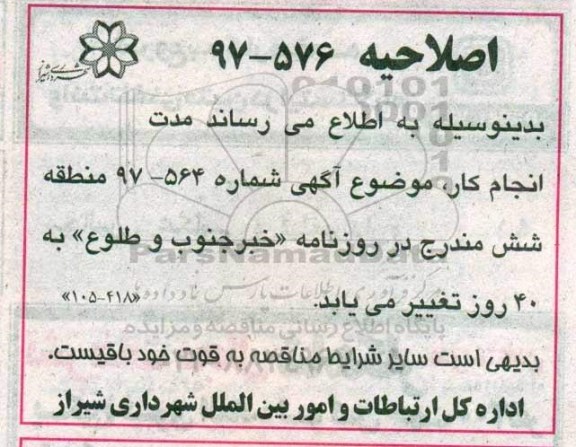 اصلاحیه ۵۷۶-۹۷
شهرداری شیراز
بدینوسیله به اطلاع می رساند مدت
انجام کار، موضوع آگهی شماره ۵۶۴-۹۷ منطقه
شش مندرج در روزنامه «خبرجنوب و طلوع» به
ParsNamadData
۴۰ روز تغییر می یابد. «۴۱۸-۱۰۵»
پایگاه اطلاع رسانی مناقصه و مزایده
بدیهی است سایر شرایط مناقصه به قوت خود باقیست.
اداره کل ارتباطات و امور بین الملل شهرداری شیراز